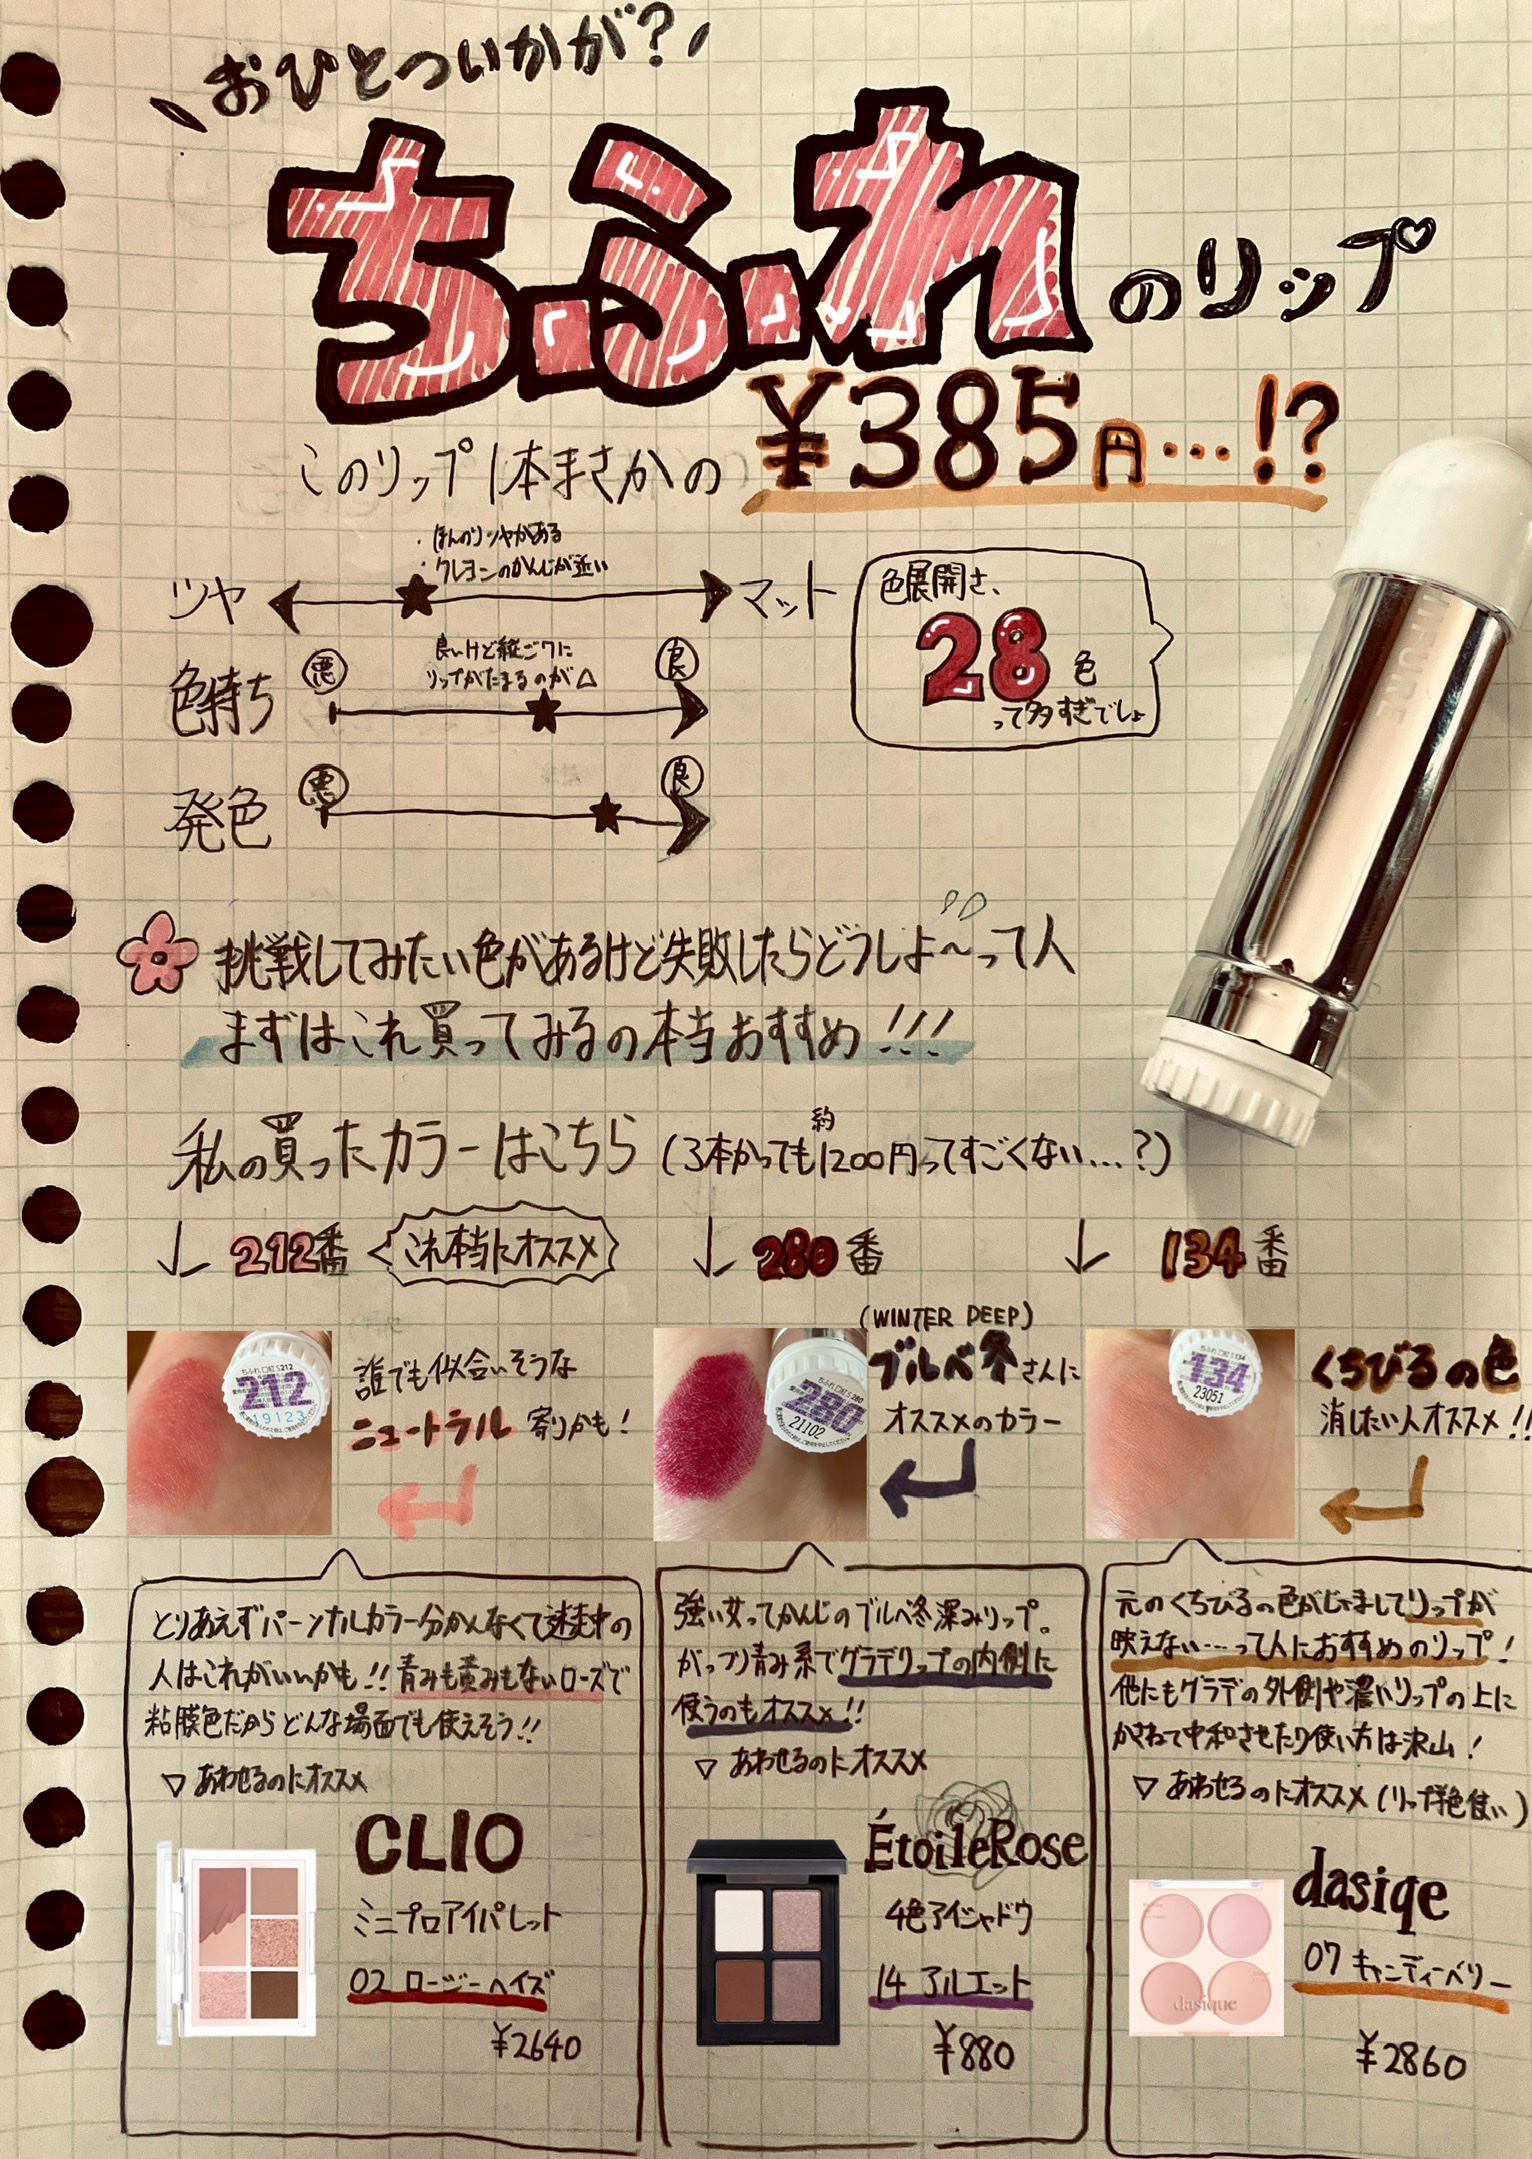 おひとついかが?
ちふれのリップ
このリップ1本まさかの ¥385円…!?
・ほんのりツヤがある
・クレヨンのかんじが近い
ツヤ マット
色展開さ、
28色
って多すぎでしょ
色持ち 悪 良
良いけど縦ジワに
リップがたまるのが△
発色 悪 良
CHIFURE
挑戦してみたい色があるけど失敗したらどうしよ〜って人
まずはこれ買ってみるの本当おすすめ!!!
私の買ったカラーはこちら (3本かっても約1200円ってすごくない…?)
↓ 212番 これ本当にオススメ
↓ 280番
↓ 134番
ちふれ口紅S212
212
19123
誰でも似合いそうな
ニュートラル寄りかも!
ちふれ口紅S280
280
21102
(WINTER DEEP)
ブルベ冬さんに
オススメのカラー
134
23051
くちびるの色
消したい人オススメ!!
とりあえずパーソナルカラー分かんなくて迷走中の
人はこれがいいかも!!青みも黄みもないローズで
粘膜色だからどんな場面でも使えそう!!
▽ あわせるのにオススメ
CLIO
ミニプロアイパレット
02 ロージーヘイズ
¥2640
強い女ってかんじのブルベ冬深みリップ。
がっつり青み系でグラデリップの内側に
使うのもオススメ!!
▽ あわせるのにオススメ
ÉtoileRose
4色アイシャドウ
14 アルエット
¥880
元のくちびるの色がじゃましてリップが
映えない…って人におすすめのリップ!
他にもグラデの外側や濃いリップの上に
かさねて中和させたり使い方は沢山!
▽ あわせるのにオススメ(リップ単色使い)
dasiqe
07 キャンディーベリー
dasique
¥2860